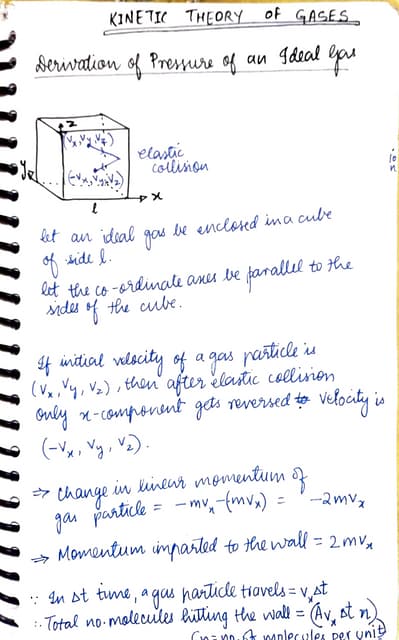 KINETIC THEORY OF GASES
Derivation of Pressure of an Ideal Gas
z
(Vx, Vy, Vz)
elastic
collision
y
(-Vx, Vy, Vz)
x
l
let an ideal gas be enclosed in a cube
of side l.
let the co-ordinate axes be parallel to the
sides of the cube.
If initial velocity of a gas particle is
(Vx, Vy, Vz), then after elastic collision
only x-component gets reversed velocity is
(-Vx, Vy, Vz).
⇒ Change in linear momentum of
gas particle = -mvx-(mvx) = -2mvx
⇒ Momentum imparted to the wall = 2mvx
∵ In Δt time, a gas particle travels = vxΔt
∴ Total no. molecules hitting the wall = (Avx Δt n)
(n = no. of molecules per unit